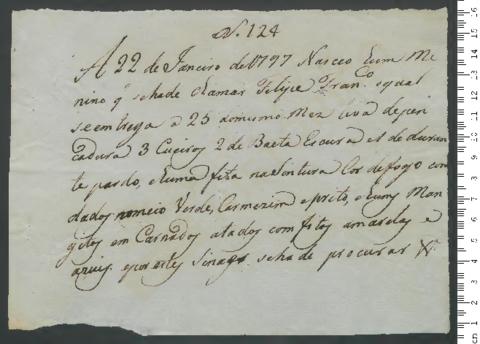 N. 124
A 22 de Janeiro de 1797 Nasceo hum Me
nino q se hade chamar Felipe Franco o qual
se entrega a 25 do mismo Mez Leva de pen
cadura 3 Cueiros 2 de Baeta Escura e 1 de duran
te pardo, e huma fita na Sintura Cor de fogo com
dados no meio Verde, Carmezim e prito, e huns Man
gitos em Carnados atados com fitas amarelas e
azuis e por estes Sinaes se ha de procurar